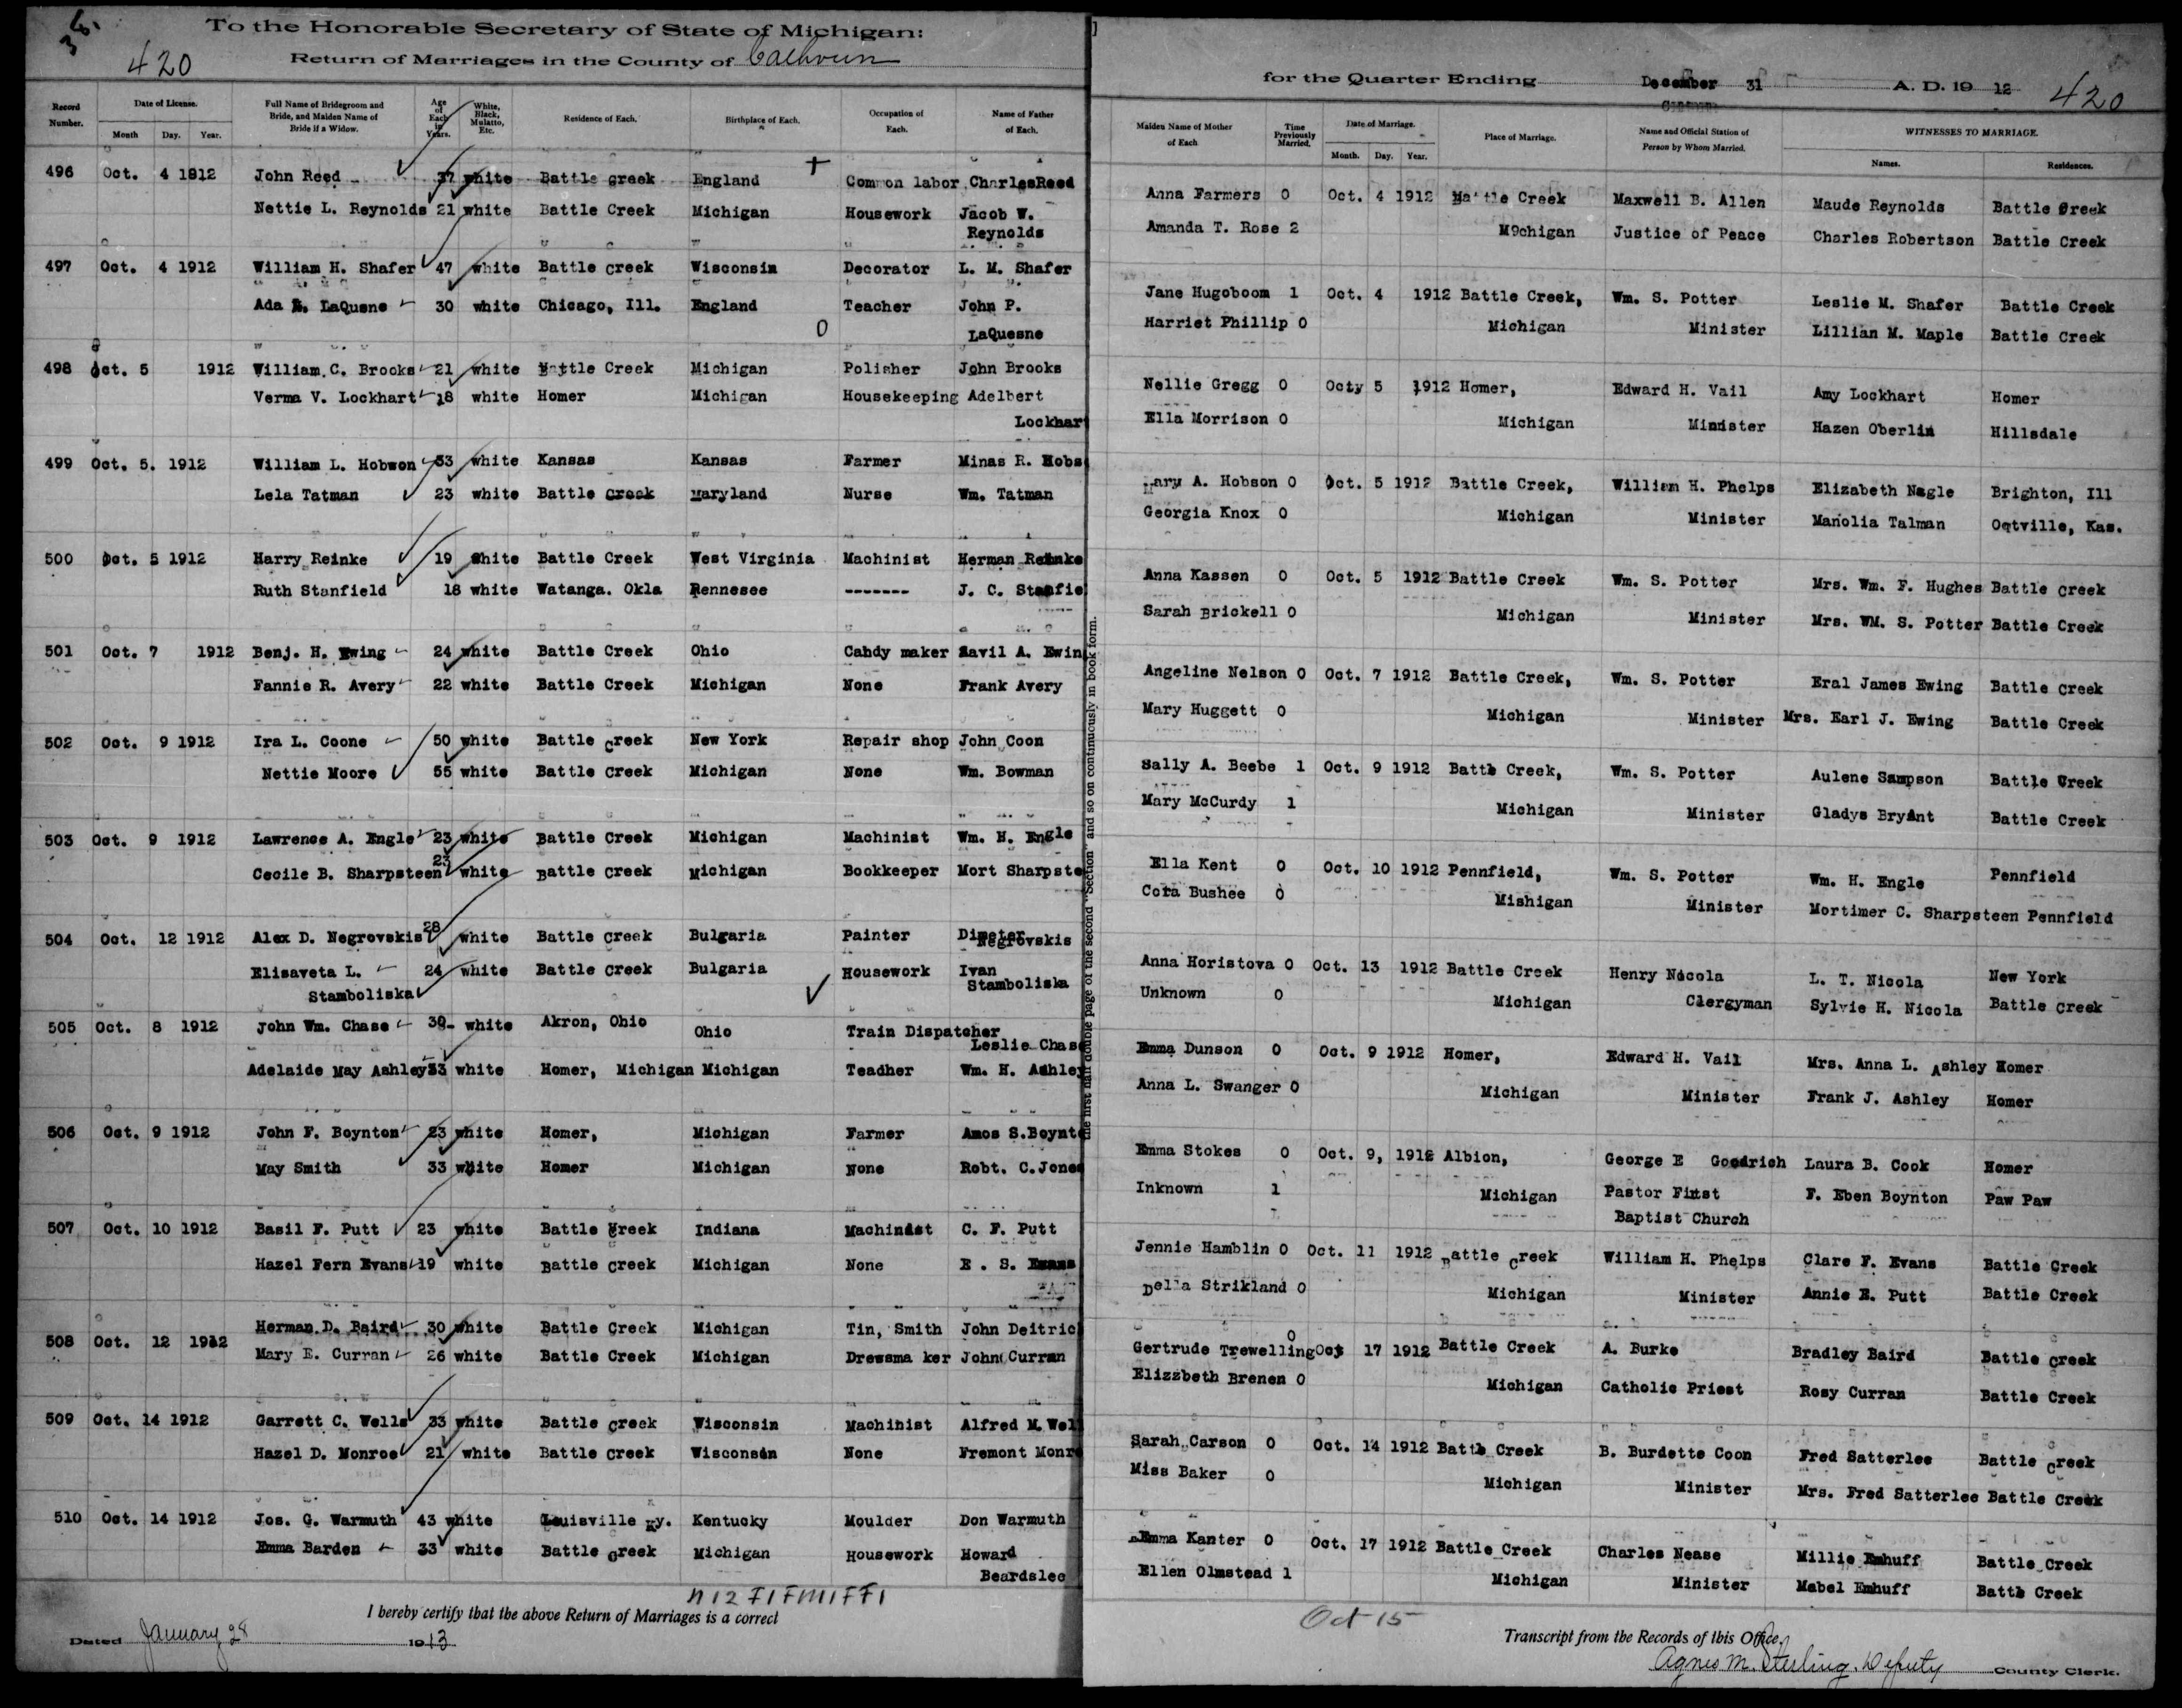 36.
To the Honorable Secretary of State of Michigan:
420
Return of Marriages in the County of Calhoun
for the Quarter Ending December 31 A. D. 19 12 420
Record Number. Date of License. Month Day. Year. Full Name of Bridegroom and Bride, and Maiden Name of Bride if a Widow. Age of Each in Years. White, Black, Mulatto, Etc. Residence of Each. Birthplace of Each. Occupation of Each. Name of Father of Each.
Maiden Name of Mother of Each Time Previously Married. Date of Marriage. Month. Day. Year. Place of Marriage. Name and Official Station of Person by Whom Married. WITNESSES TO MARRIAGE. Names. Residences.
496 Oct. 4 1912 John Reed 37 white Battle Creek England Common labor CharlesReed Anna Farmers 0 Oct. 4 1912 Battle Creek Maxwell B. Allen Maude Reynolds Battle Creek
Nettie L. Reynolds 21 white Battle Creek Michigan Housework Jacob W. Reynolds Amanda T. Rose 2 M9chigan Justice of Peace Charles Robertson Battle Creek
497 Oct. 4 1912 William H. Shafer 47 white Battle Creek Wisconsin Decorator L. M. Shafer Jane Hugoboom 1 Oct. 4 1912 Battle Creek, Wm. S. Potter Leslie M. Shafer Battle Creek
Ada LaQusne 30 white Chicago, Ill. England Teacher John P. LaQuesne Harriet Phillip 0 Michigan Minister Lillian M. Maple Battle Creek
498 Oct. 5 1912 William C. Brooks 21 white Battle Creek Michigan Polisher John Brooks Nellie Gregg 0 Octy 5 1912 Homer, Edward H. Vail Amy Lockhart Homer
Verma V. Lockhart 18 white Homer Michigan Housekeeping Adelbert Lockhar Ella Morrison 0 Michigan Minister Hazen Oberlin Hillsdale
499 Oct. 5. 1912 William L. Hobson 53 white Kansas Kansas Farmer Minas R. Hobs Mary A. Hobson 0 Oct. 5 1912 Battle Creek, William H. Phelps Elizabeth Nagle Brighton, Ill
Lela Tatman 23 white Battle Creek Maryland Nurse Wm. Tatman Georgia Knox 0 Michigan Minister Manolia Talman Oatville, Kas.
500 Oct. 5 1912 Harry Reinke 19 white Battle Creek West Virginia Machinist Herman Reinke Anna Kassen 0 Oct. 5 1912 Battle Creek Wm. S. Potter Mrs. Wm. F. Hughes Battle Creek
Ruth Stanfield 18 white Watanga. Okla Rennesee ------- J. C. Stanfie Sarah Brickell 0 Michigan Minister Mrs. WM. S. Potter Battle Creek
501 Oct. 7 1912 Benj. H. Ewing 24 white Battle Creek Ohio Cahdy maker Savil A. Ewin Angeline Nelson 0 Oct. 7 1912 Battle Creek, Wm. S. Potter Eral James Ewing Battle Creek
Fannie R. Avery 22 white Battle Creek Michigan None Frank Avery Mary Huggett 0 Michigan Minister Mrs. Earl J. Ewing Battle Creek
502 Oct. 9 1912 Ira L. Coone 50 white Battle Creek New York Repair shop John Coon Sally A. Beebe 1 Oct. 9 1912 Battle Creek, Wm. S. Potter Aulene Sampson Battle Creek
Nettie Moore 55 white Battle Creek Michigan None Wm. Bowman Mary McCurdy 1 Michigan Minister Gladys Bryant Battle Creek
503 Oct. 9 1912 Lawrence A. Engle 23 white Battle Creek Michigan Machinist Wm. H. Engle Ella Kent 0 Oct. 10 1912 Pennfield, Wm. S. Potter Wm. H. Engle Pennfield
Cecile B. Sharpsteen 23 white Battle Creek Michigan Bookkeeper Mort Sharpste Cora Bushee 0 Mishigan Minister Mortimer C. Sharpsteen Pennfield
504 Oct. 12 1912 Alex D. Negrovskis 28 white Battle Creek Bulgaria Painter Dimeter Negrovskis Anna Horistova 0 Oct. 13 1912 Battle Creek Henry Nicola L. T. Nicola New York
Elisaveta L. Stamboliska 24 white Battle Creek Bulgaria Housework Ivan Stamboliska Unknown 0 Michigan Clergyman Sylvie H. Nicola Battle Creek
505 Oct. 8 1912 John Wm. Chase 30 white Akron, Ohio Ohio Train Dispatcher Leslie Chase Emma Dunson 0 Oct. 9 1912 Homer, Edward H. Vail Mrs. Anna L. Ashley Homer
Adelaide May Ashley 33 white Homer, Michigan Michigan Teadher Wm. H. Ashley Anna L. Swanger 0 Michigan Minister Frank J. Ashley Homer
506 Oct. 9 1912 John F. Boynton 23 white Homer, Michigan Farmer Amos S.Boynt Emma Stokes 0 Oct. 9, 1912 Albion, George E Goodrich Laura B. Cook Homer
May Smith 33 white Homer Michigan None Robt. C.Jones Inknown 1 Michigan Pastor First Baptist Church F. Eben Boynton Paw Paw
507 Oct. 10 1912 Basil F. Putt 23 white Battle Creek Indiana Machinist C. F. Putt Jennie Hamblin 0 Oct. 11 1912 Battle Creek William H. Phelps Clare F. Evans Battle Creek
Hazel Fern Evans 19 white Battle Creek Michigan None E . S. Evans Della Strikland 0 Michigan Minister Annie E. Putt Battle Creek
508 Oct. 12 1912 Herman D. Baird 30 white Battle Creek Michigan Tin, Smith John Deitric Gertrude Trewelling 0 Oct 17 1912 Battle Creek A. Burke Bradley Baird Battle Creek
Mary E. Curran 26 white Battle Creek Michigan Drewsma ker John Curran Elizzbeth Brenen 0 Michigan Catholic Priest Rosy Curran Battle Creek
509 Oct. 14 1912 Garrett C. Wells 33 white Battle Creek Wisconsin Machihist Alfred M. Wel Sarah Carson 0 Oct. 14 1912 Battle Creek B. Burdette Coon Fred Satterlee Battle Creek
Hazel D. Monroe 21 white Battle Creek Wisconsin None Fremont Monro Miss Baker 0 Michigan Minister Mrs. Fred Satterlee Battle Creek
510 Oct. 14 1912 Jos. G. Warmuth 43 white Louisville Ky. Kentucky Moulder Don Warmuth Emma Kanter 0 Oct. 17 1912 Battle Creek Charles Nease Millie Emhuff Battle Creek
Emma Barden 33 white Battle Creek Michigan Housework Howard Beardslee Ellen Olmstead 1 Michigan Minister Mabel Emhuff Battle Creek
the first half double page of the second "Section" and so on continuously in book form.
I hereby certify that the above Return of Marriages is a correct Transcript from the Records of this Office.
Oct 15
Dated January 28 1913
Agnes M. Sterling, Deputy County Clerk.